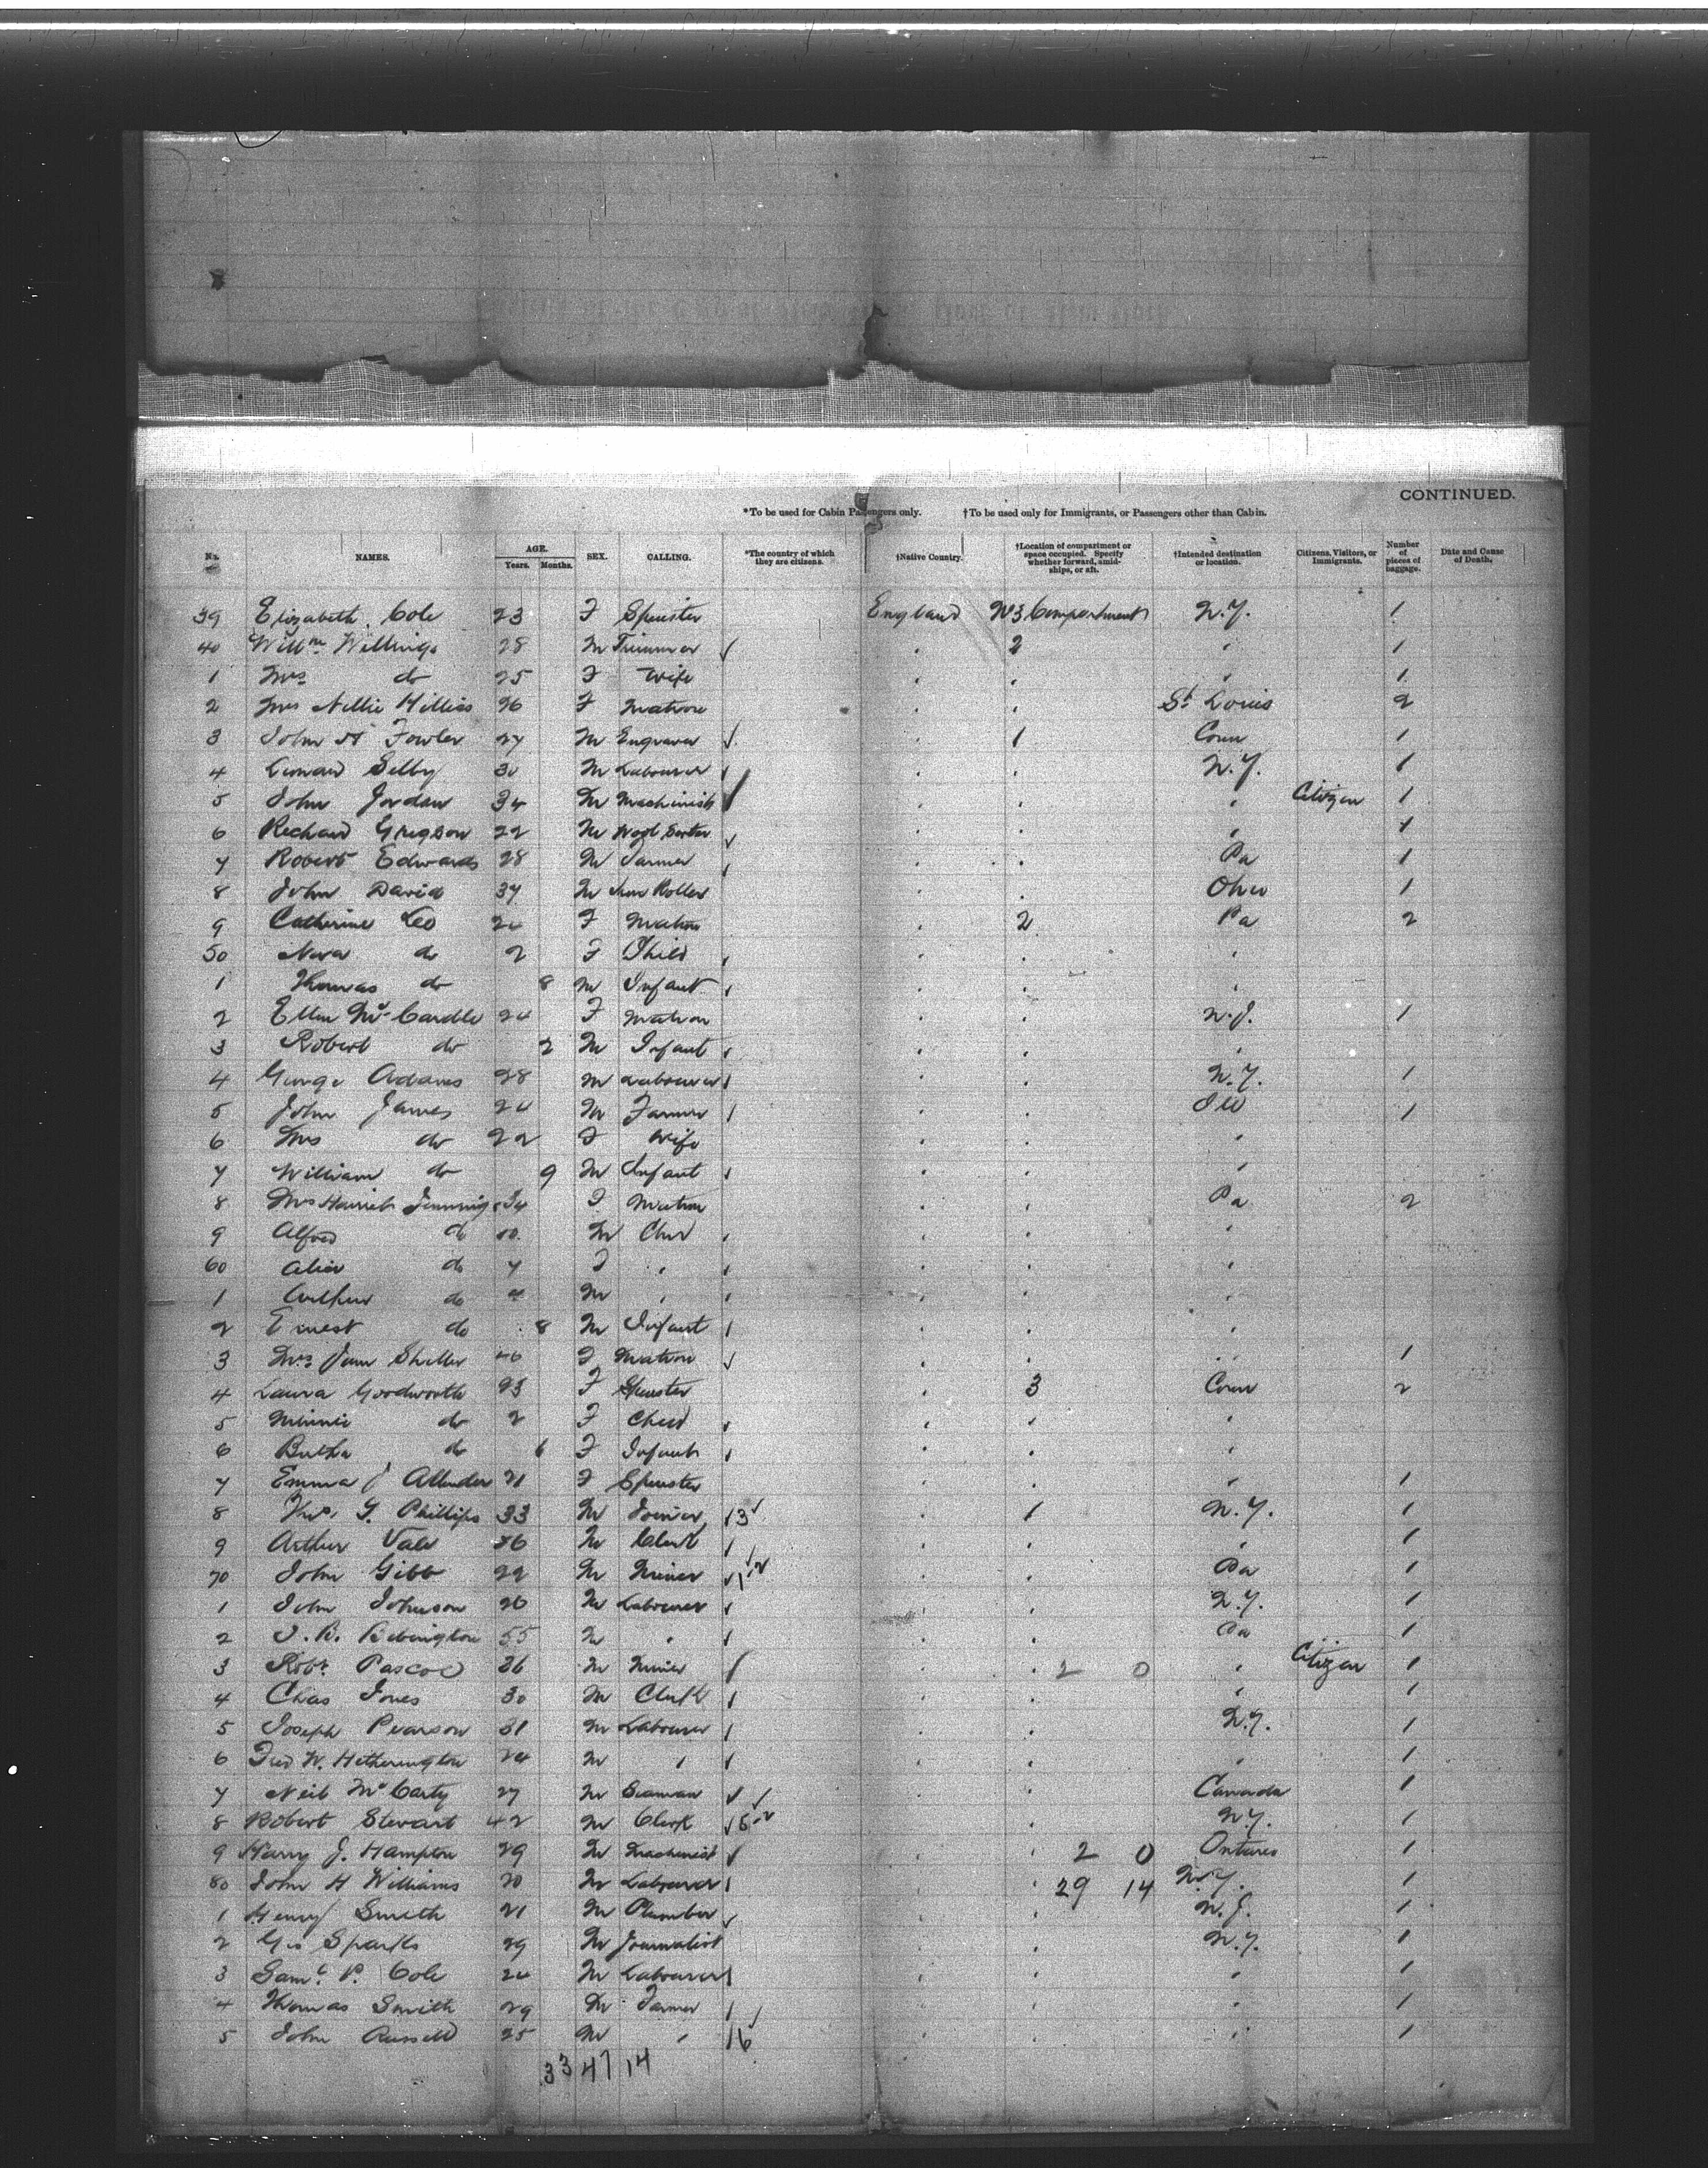 CONTINUED.
*To be used for Cabin Passengers only. †To be used only for Immigrants, or Passengers other than Cabin.
No. NAMES. AGE. Years. Months. SEX. CALLING. *The country of which they are citizens. †Native Country. †Location of compartment or space occupied. Specify whether forward, amidships, or aft. †Intended destination or location. Citizens, Visitors, or Immigrants. Number of pieces of baggage. Date and Cause of Death.
39 Elizabeth Cole 23 F Spinster England No 3 Compartment N.Y. 1
40 Willm Willings 28 M Trimmer 2 " 1
1 Mrs do 25 F Wife " 1
2 Mrs Nellie 26 F Matron St Louis 2
3 John H Fowler 27 M Engraver 1 Conn 1
4 Leonard Selby 30 M Labourer N.Y. 1
5 John Jordan 34 M Machinist " Citizen 1
6 Richard Gregson 22 M Wool Sorter " 1
7 Robert Edwards 28 M Farmer Pa 1
8 John David 37 M Iron Roller Ohio 1
9 Catherine Leo 24 F Matron 2 Pa 2
50 Nora do 2 F Child "
1 Thomas do 8 M Infant "
2 Ellen McCardle 24 F Matron N.J. 1
3 Robert do 2 M Infant "
4 George Adams 28 M Labourer N.Y. 1
5 John James 24 M Farmer Ill 1
6 Mrs do 22 F Wife "
7 William do 9 M Infant "
8 Mrs Harriet Jennings 34 F Matron Pa 2
9 Alfred do 10 M Child "
60 Alice do 7 F " "
1 Arthur do 4 M " "
2 Ernest do 8 M Infant "
3 Mrs Jane 40 F Matron " 1
4 Laura Goodworth 23 F Spinster 3 Conn 2
5 Minnie do 2 F Child "
6 Bertha do 6 F Infant "
7 Emma J 21 F Spinster " 1
8 Thos. G. Phillips 33 M Joiner 13 1 N.Y. 1
9 Arthur Vale 36 M Clerk " 1
70 John Gibb 22 M Miner Pa 1
1 John Johnson 26 M Labourer N.Y. 1
2 J. B. Bebington 55 M " Pa 1
3 Robt. Pascoe 36 M Miner 2 0 " Citizen 1
4 Chas Jones 30 M Clerk " 1
5 Joseph Pearson 31 M Labourer N.Y. 1
6 Fred W. Hetherington 24 M " " 1
7 Neil McCarty 27 M Seaman Canada 1
8 Robert Stewart 42 M Clerk N.Y. 1
9 Harry J. Hampton 29 M Machinist 2 0 Ontario 1
80 John H Williams 20 M Labourer 29 14 N.Y. 1
1 Henry Smith 21 M Plumber N.J. 1
2 Geo Sparks 29 M Journalist N.Y. 1
3 Saml. P. Cole 24 M Labourer " 1
4 Thomas Smith 29 M Farmer " 1
5 John Russell 25 M " 16 " 1
33 47 14